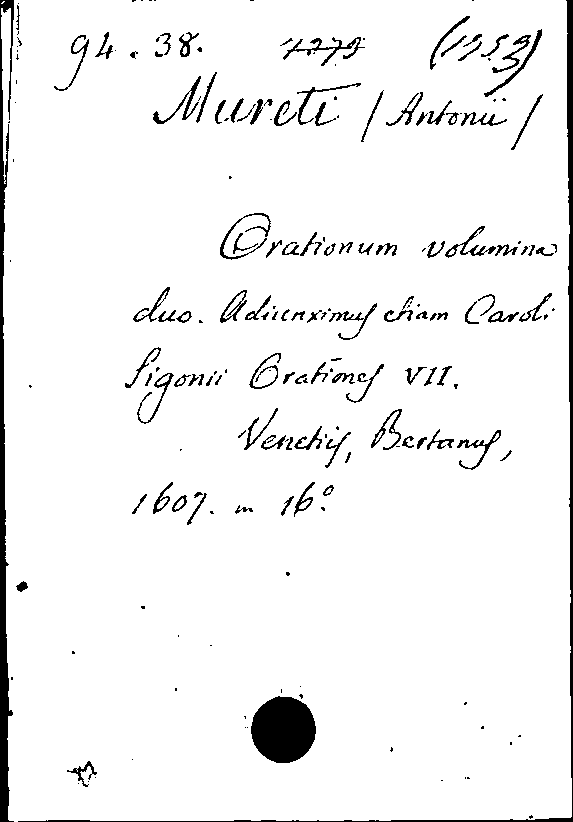 94.38. 1279 (1953)
Mureti / Antonii /
Orationum volumina
duo. Adiunximus etiam Caroli
Sigonii Orationes VII.
Venetiis, Bertanus,
1607. in 16º